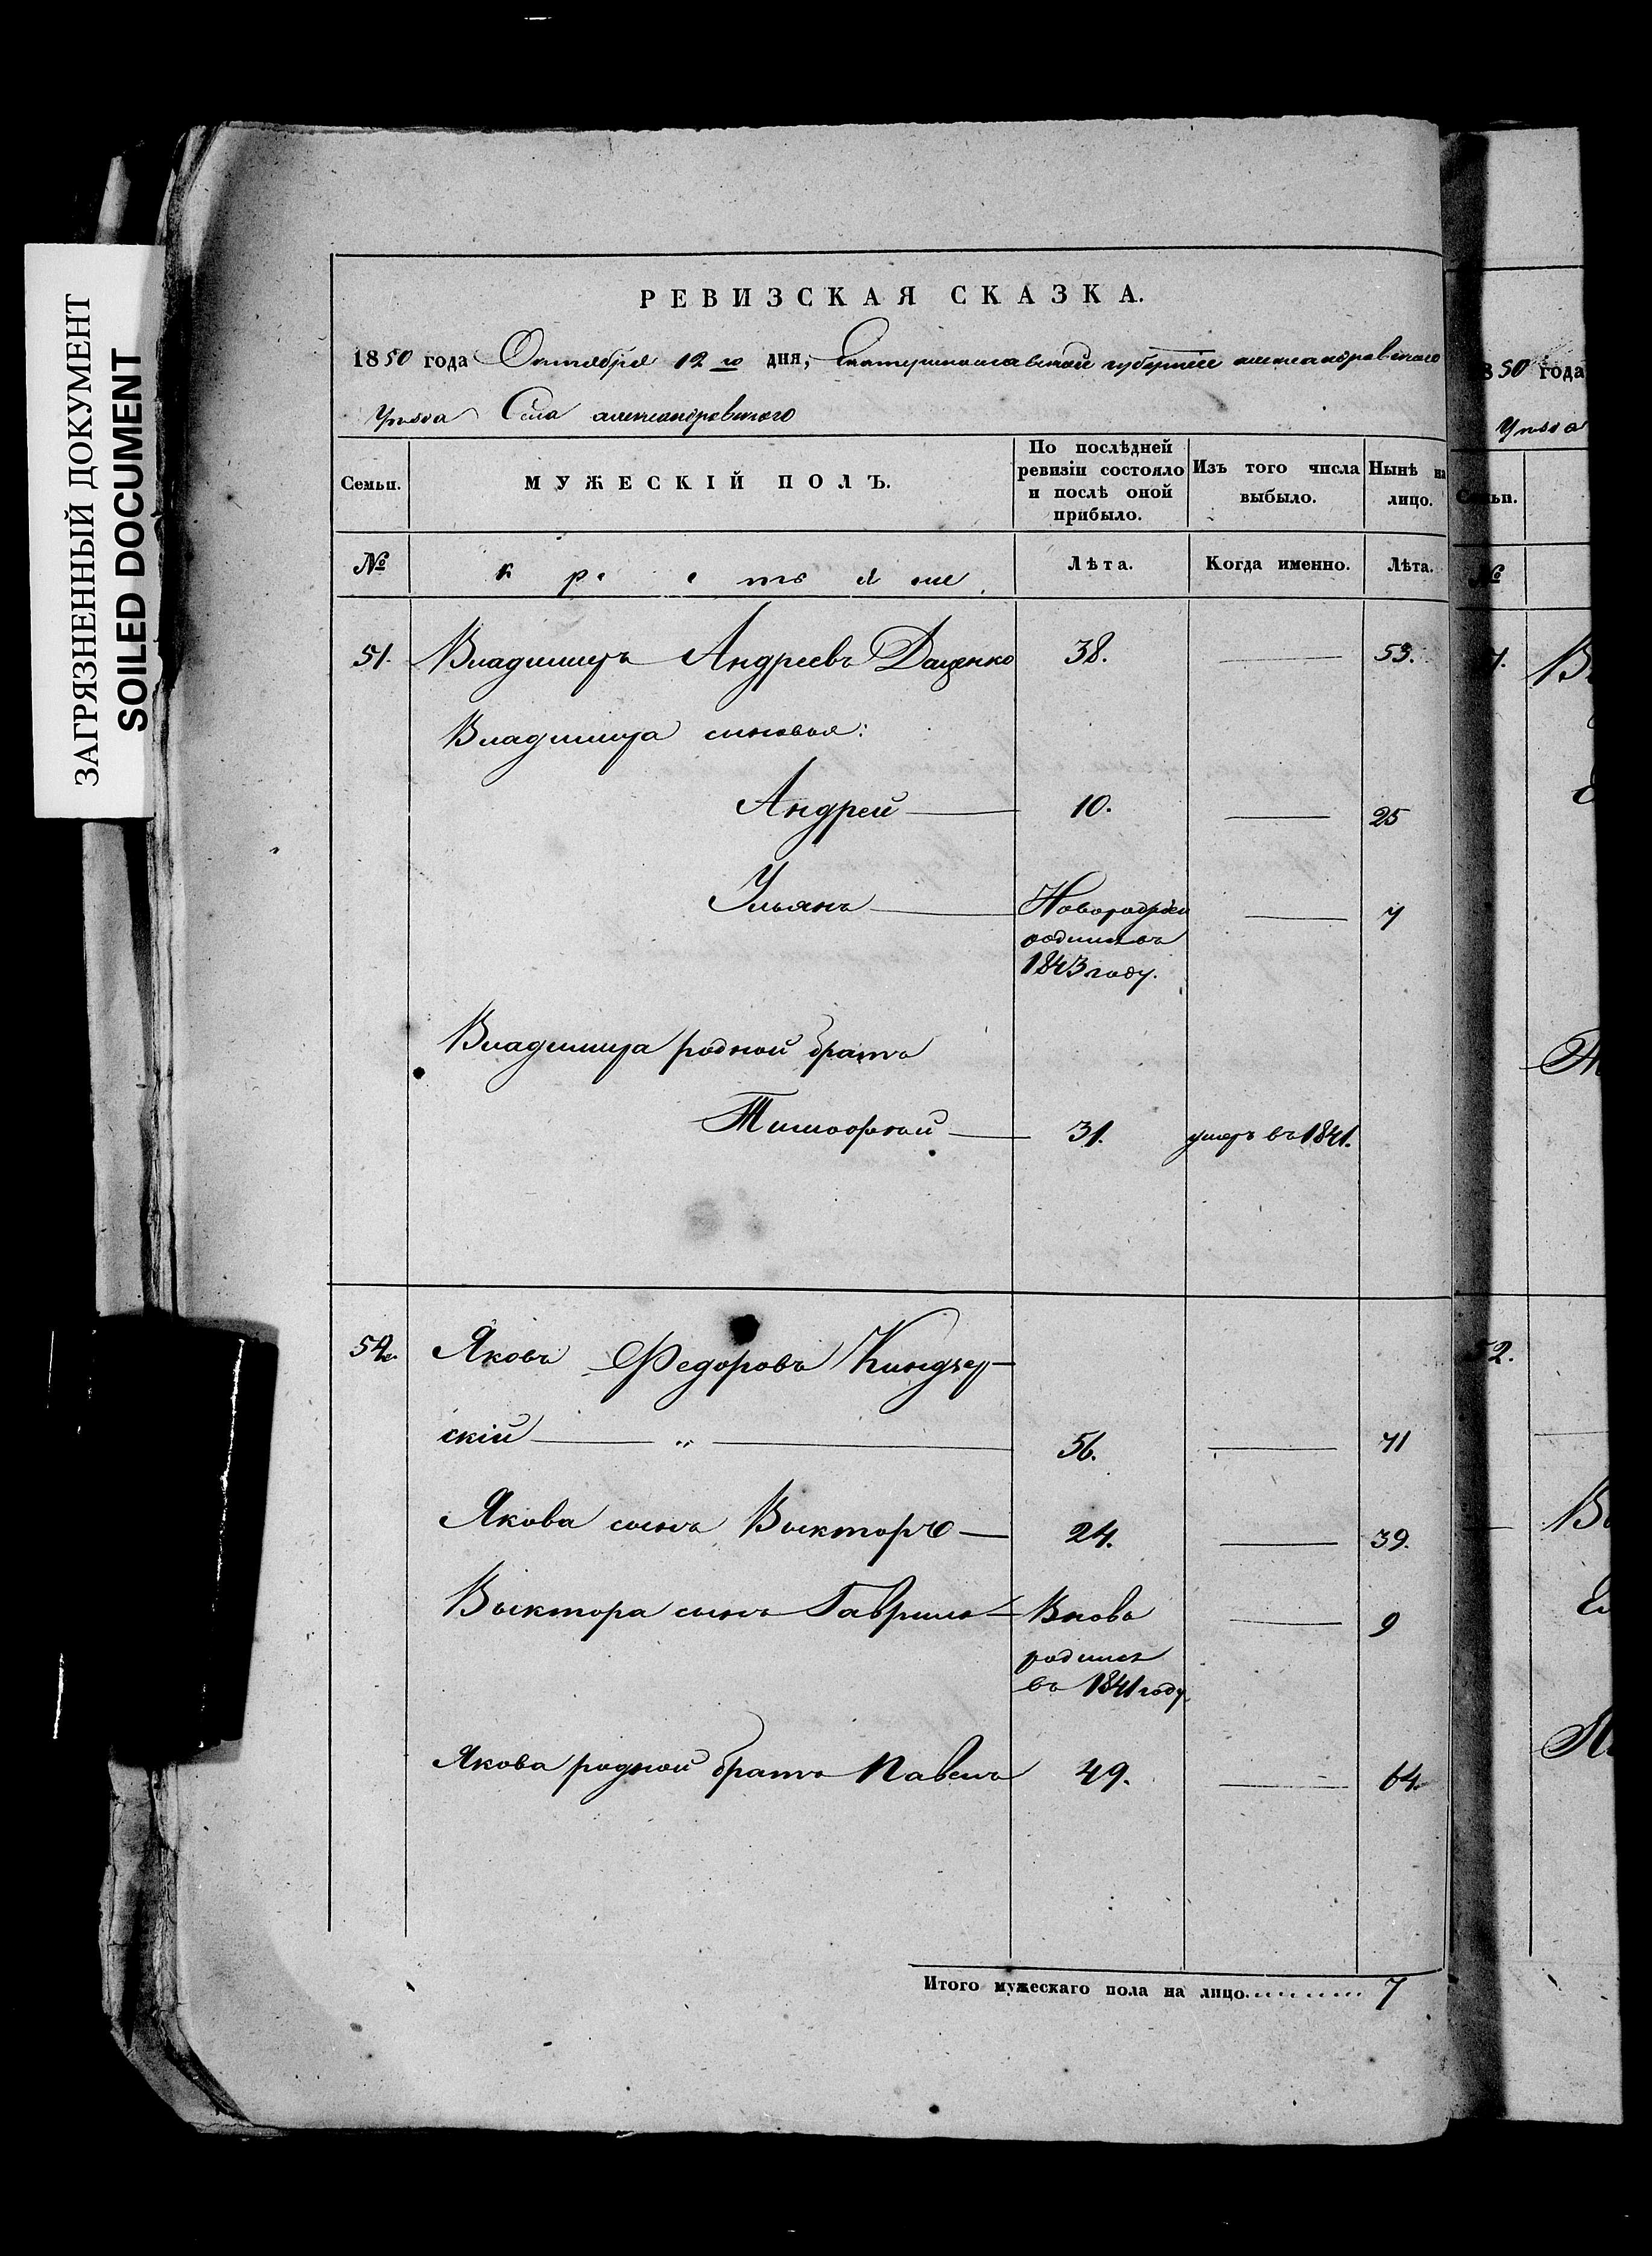 ЗАГРЯЗНЕННЫЙ ДОКУМЕНТ
SOILED DOCUMENT
РЕВИЗСКАЯ СКАЗКА.
1850 года Октября 12го дня, Екатеринославской губернiи александровского
Уѣзда Села александровского
Семьи. МУЖЕСКІЙ ПОЛЪ. По послѣдней ревизіи состояло и послѣ оной прибыло. Изъ того числа выбыло. Нынѣ на лицо.
№ крестьяне Лѣта. Когда именно. Лѣта.
51. Владимиръ Андреевъ Даценко 38. — 53.
Владимира синовья:
Андрей — 10. — 25
Ульянъ — — 7
родился въ
1843 году.
Владимира родной братъ
Тимофей — 31. умеръ въ 1841.
52. Яковъ Федоровъ Киндзер-
скій — " — 56. — 71
Якова сынъ Выкторъ — 24. — 39.
Выктора сынъ Гаврило — Вновь — 9
родился
въ 1841 году
Якова родной братъ Павелъ 49. — 64.
Итого мужескаго пола на лицо.......... 7
850 года
Уѣзда
Семьи.
№
52.